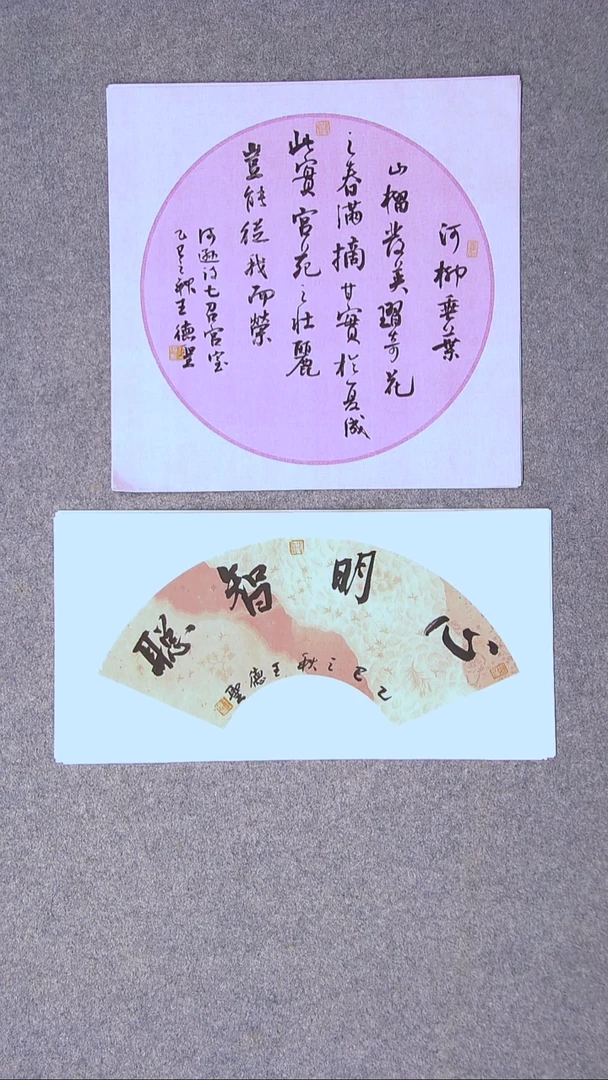 河柳垂葉
山榴發英翫奇花
之春滿摘甘實於夏成
此實宮苑之壯麗
豈能從我而榮
何遜詩七召宮室
乙巳之秋王德聖
心明智聰
乙巳之秋王德聖